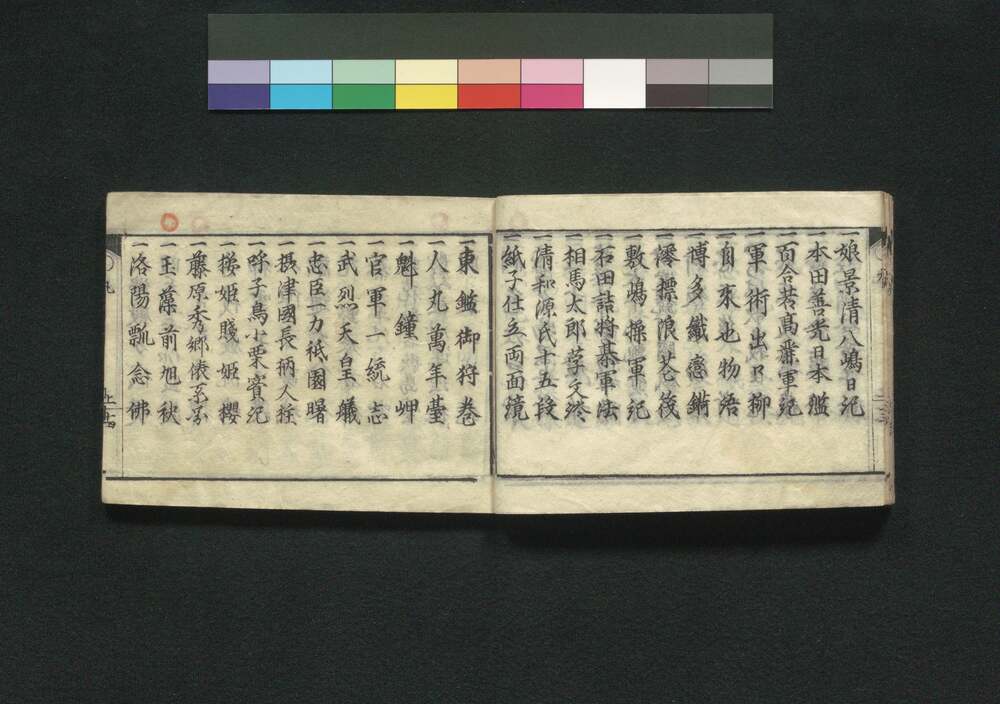 一娘景清八嶋日記
一本田善光日本鑑
一百合若高麗軍記
一軍術出口柳
一自来也物語
一博多織恋錥
一澪標浪花筏
一敷嶋操軍記
一石田詰将棊軍法
一相馬太郎孛文談
一清和源氏十五段
一紙子仕立両面鏡
一東鑑御狩巻
一人丸萬年䑓
一魁鐘岬
一官軍一統志
一武烈天皇艤
一忠臣一力祇園曙
一摂津國長柄人柱
一呼子鳥小栗実記
一桜姫賤姫櫻
一藤原秀郷俵系図
一玉藻前旭袂
一洛陽瓢念佛